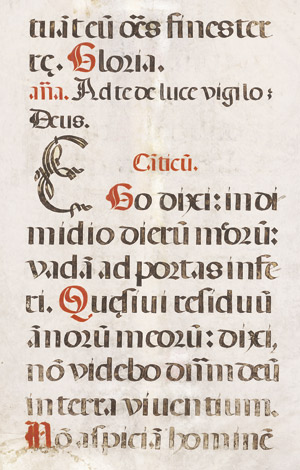 tuāt eū oēs fines ter
rę. Gloria.
añ̄a. Ad te de luce vigilo:
Deus.
Cāticū.
EGo dixi: in di
midio dierū meorū:
vadā ad portas infe
ri. Quęsiui residuū
ānorū meorū: dixi,
nō videbo dn̄m deū
in terra viuentium.
Nō aspiciā hominē